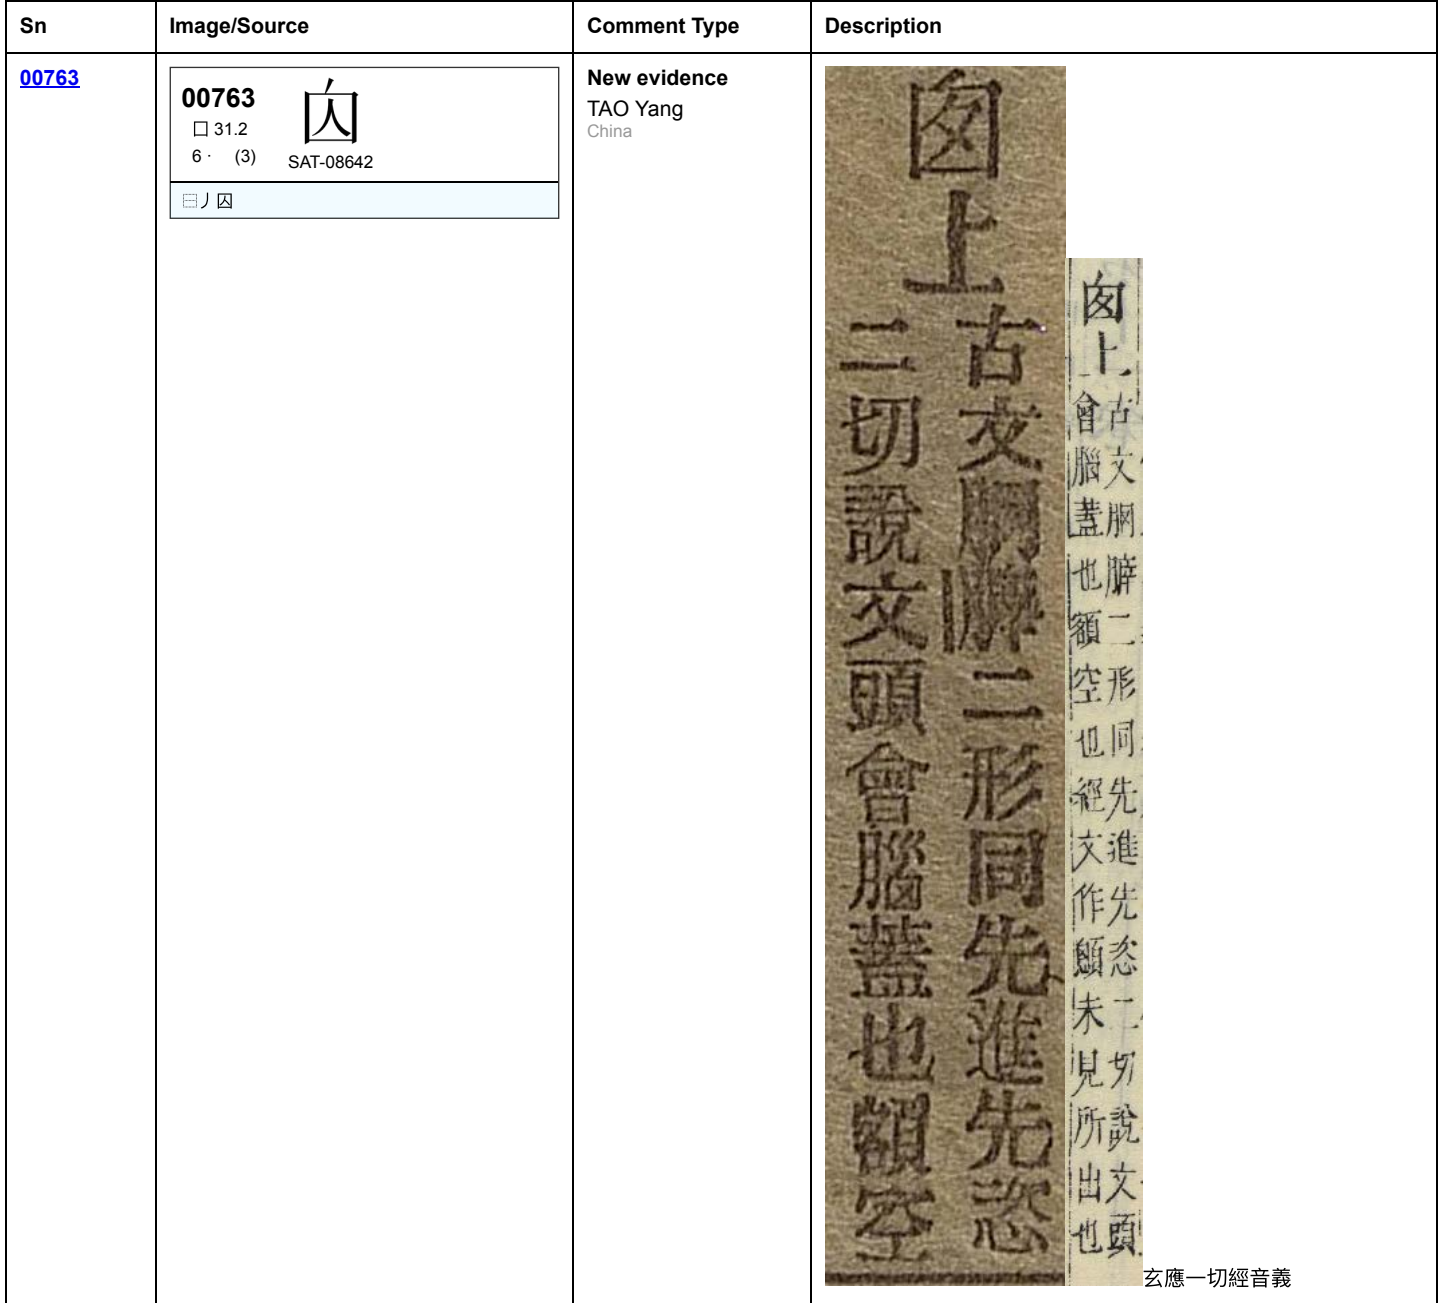 Sn Image/Source Comment Type Description
00763
00763
囗 31.2
6 · (3)
SAT-08642
⿱丿囚
New evidence
TAO Yang
China
囟上
古文𦛁二形同先進先恣
二切說文頭會腦蓋也額空
囟上
古文二形同先進先恣二切說文頭
會腦蓋也額空也經文作未見所出也
玄應一切經音義